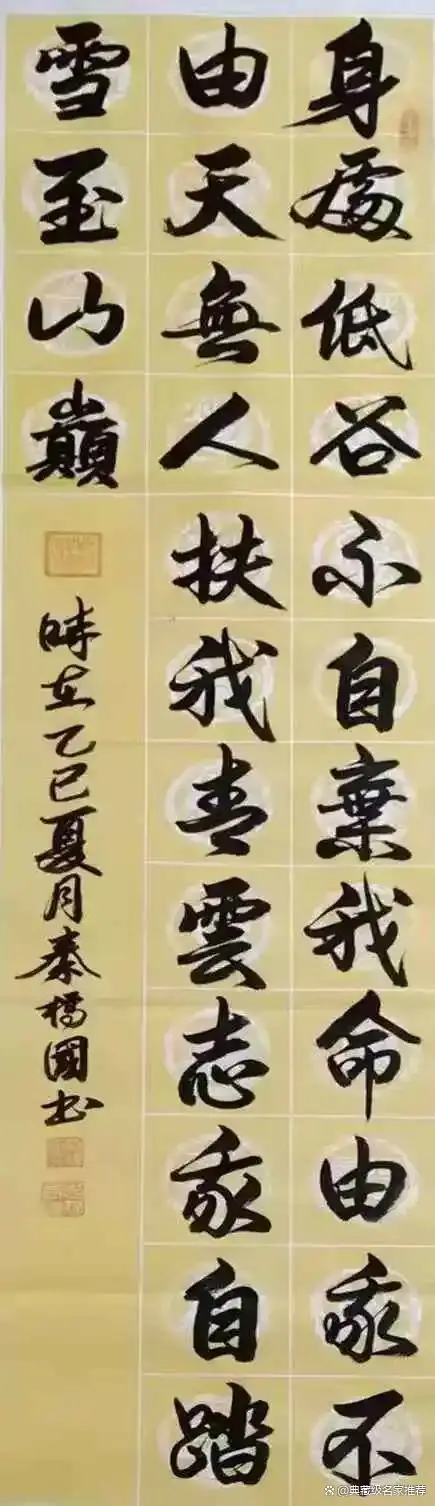 身處低谷不自棄我命由我不
由天無人扶我青雲志我自踏
雪至山巔
時在乙巳夏月秦橋國书
@典藏级名家推荐